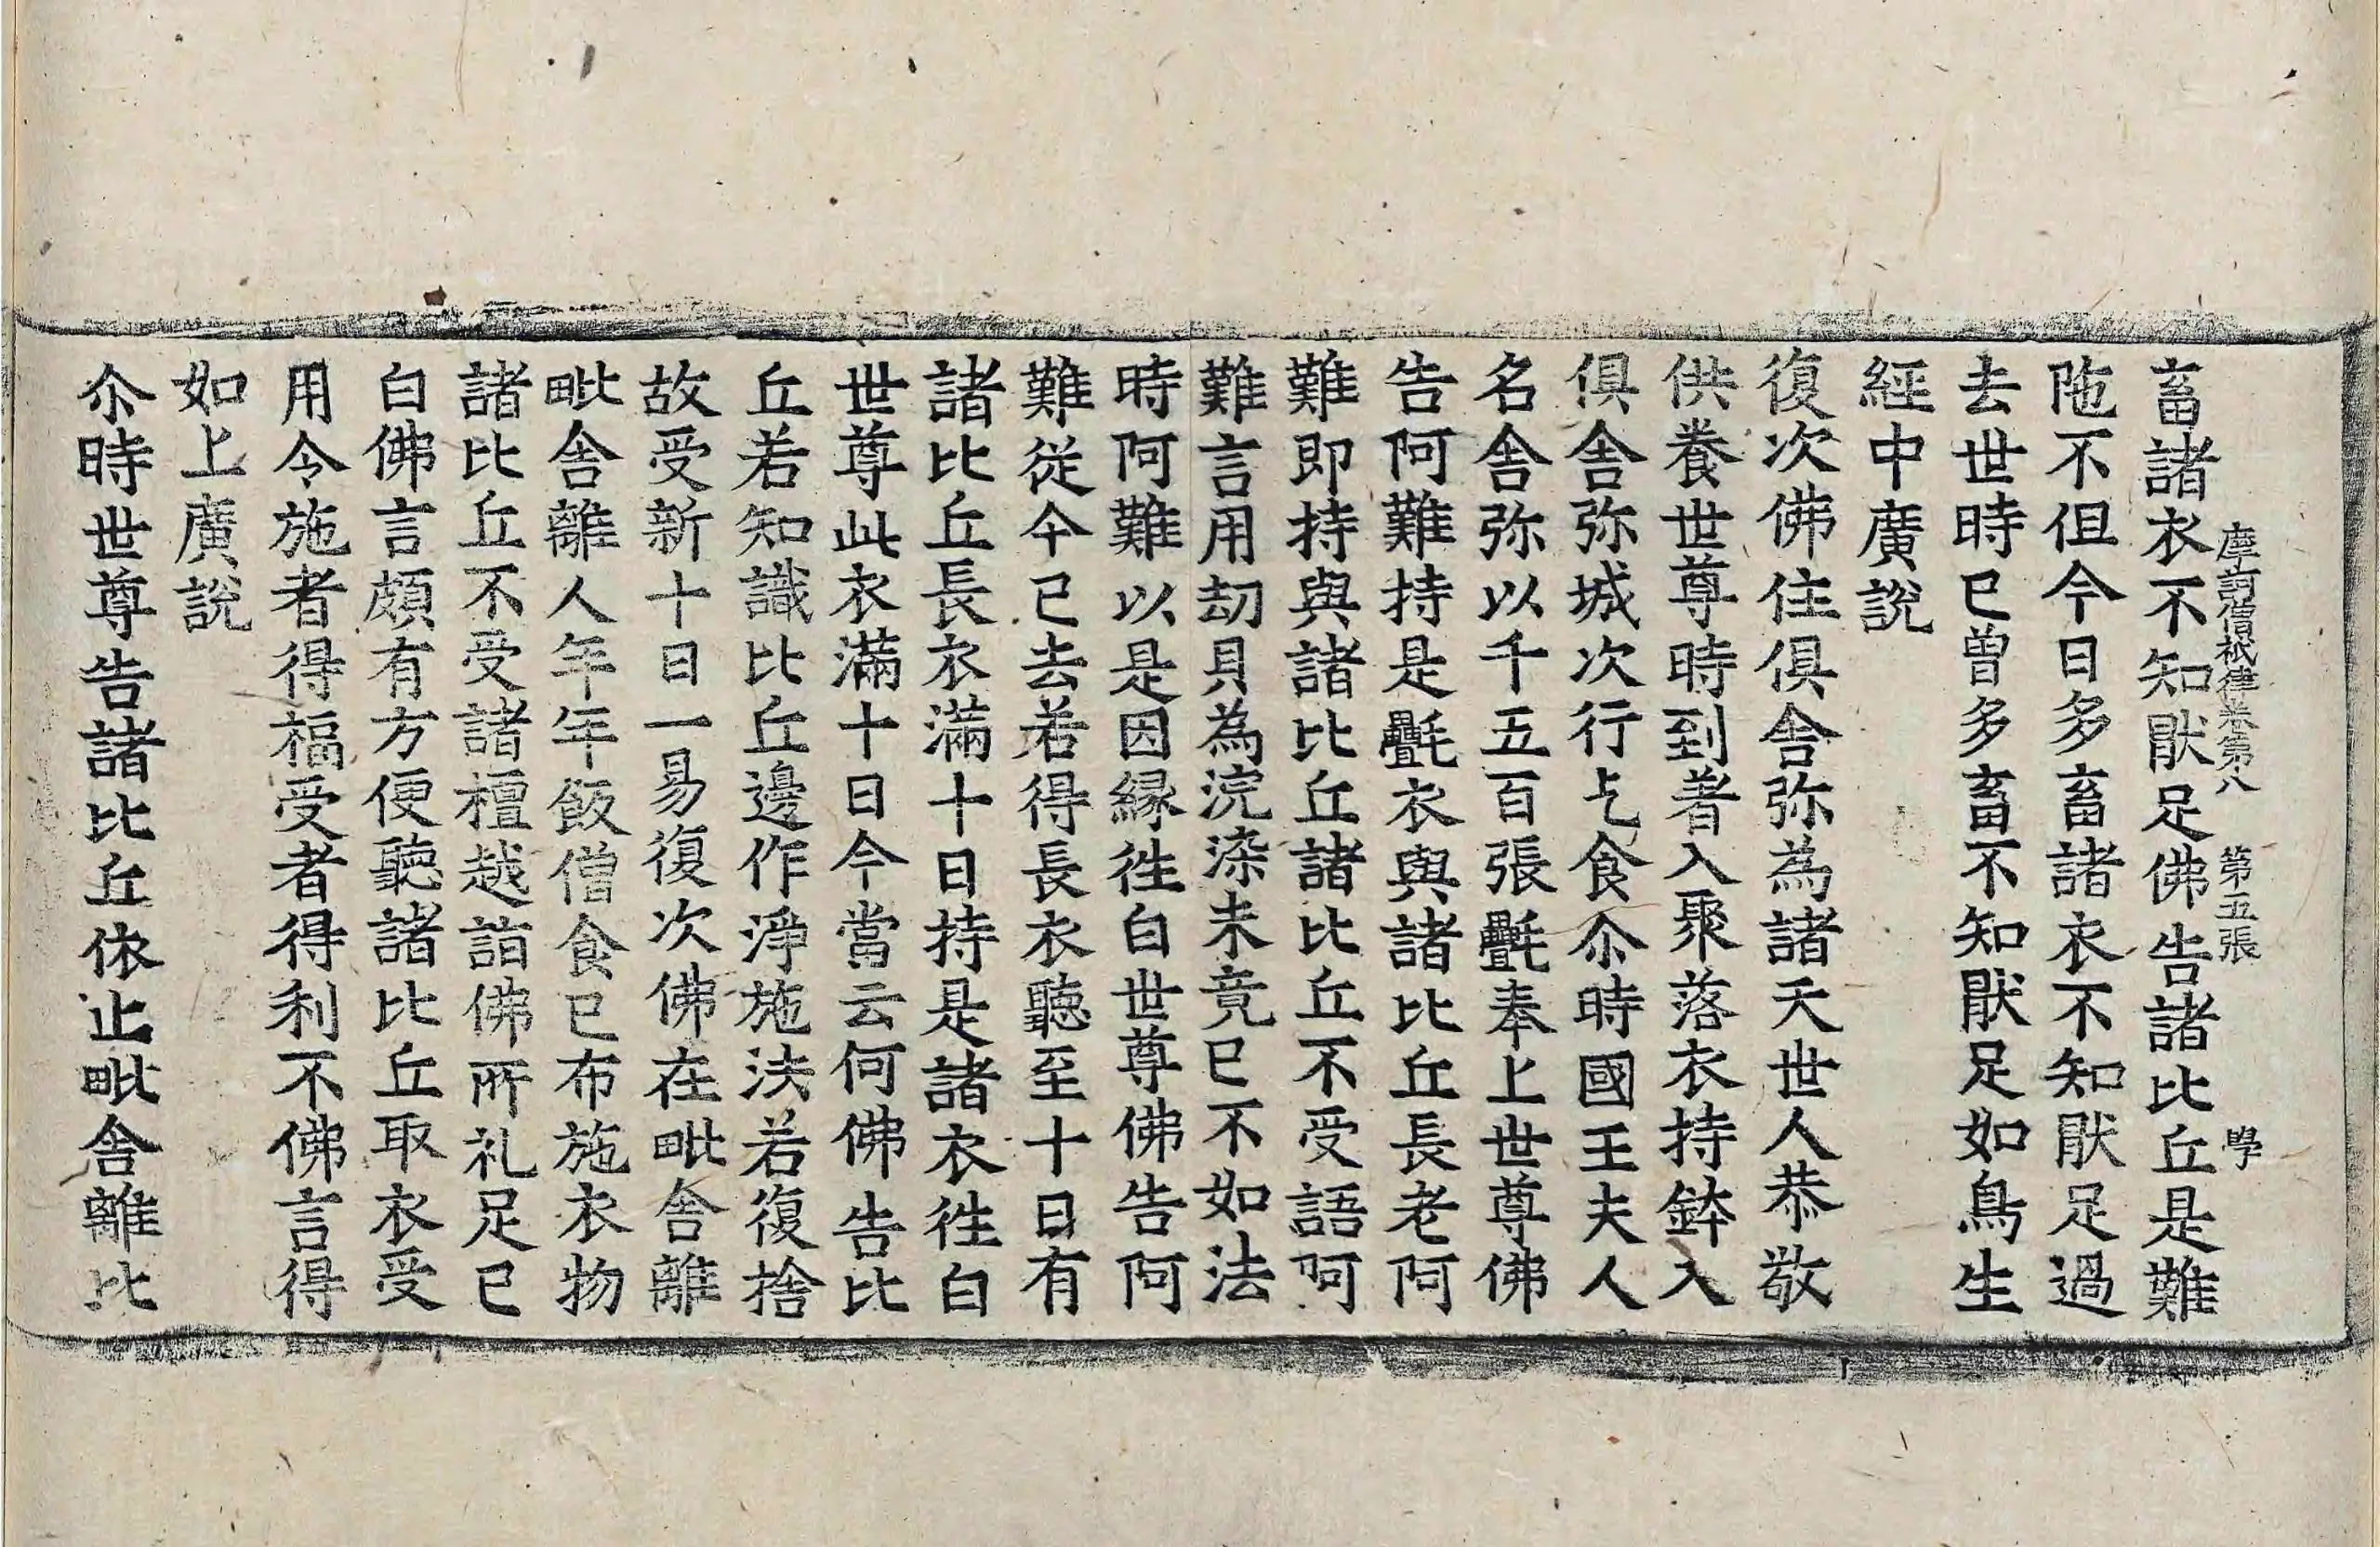 畜諸衣不知猒足佛告諸比丘是難
摩訶僧祇律卷第八 第五張 學
陁不但今日多畜諸衣不知猒足過
去世時已曾多畜不知猒足如鳥生
經中廣說
復次佛住俱舍弥為諸天世人恭敬
供養世尊時到著入聚落衣持鉢入
俱舍弥城次行乞食尒時國王夫人
名舍弥以千五百張㲲奉上世尊佛
告阿難持是㲲衣與諸比丘長老阿
難即持與諸比丘諸比丘不受語阿
難言用刧貝為浣染未竟已不如法
時阿難以是因縁徃白世尊佛告阿
難從今已去若得長衣聽至十日有
諸比丘長衣滿十日持是諸衣徃白
世尊此衣滿十日今當云何佛告比
丘若知識比丘邊作淨施法若復捨
故受新十日一易復次佛在毗舍離
毗舍離人年年飯僧食已布施衣物
諸比丘不受諸檀越詣佛所礼足已
白佛言頗有方便聽諸比丘取衣受
用令施者得福受者得利不佛言得
如上廣說
尒時世尊告諸比丘依止毗舍離比